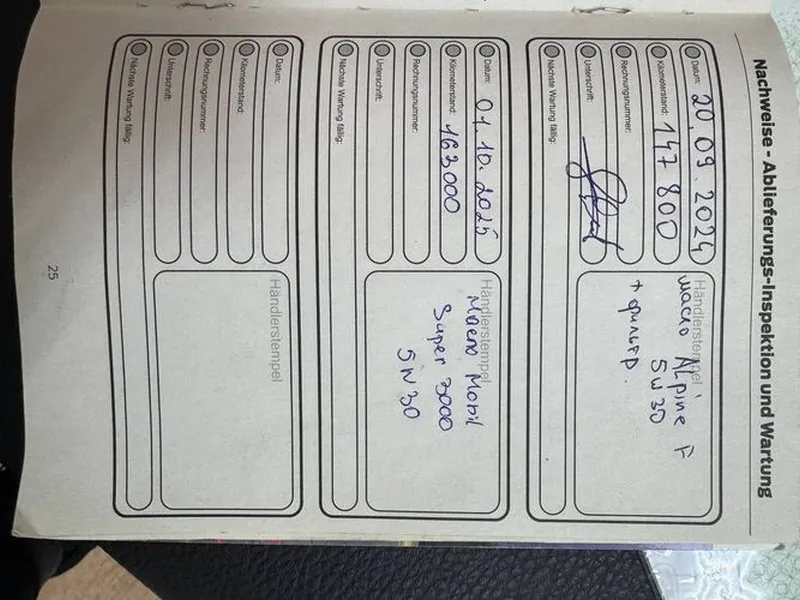 Nachweise - Ablieferungs-Inspektion und Wartung
Datum: 20.09.2024
Kilometerstand: 147 800
Rechnungsnummer:
Unterschrift:
Nächste Wartung fällig:
Händlerstempel
масло Alpine F
5W30
+ фильтр.
Datum: 01.10.2025
Kilometerstand: 163000
Rechnungsnummer:
Unterschrift:
Nächste Wartung fällig:
Händlerstempel
Масло Mobil
Super 3000
5W30
Datum:
Kilometerstand:
Rechnungsnummer:
Unterschrift:
Nächste Wartung fällig:
Händlerstempel
25